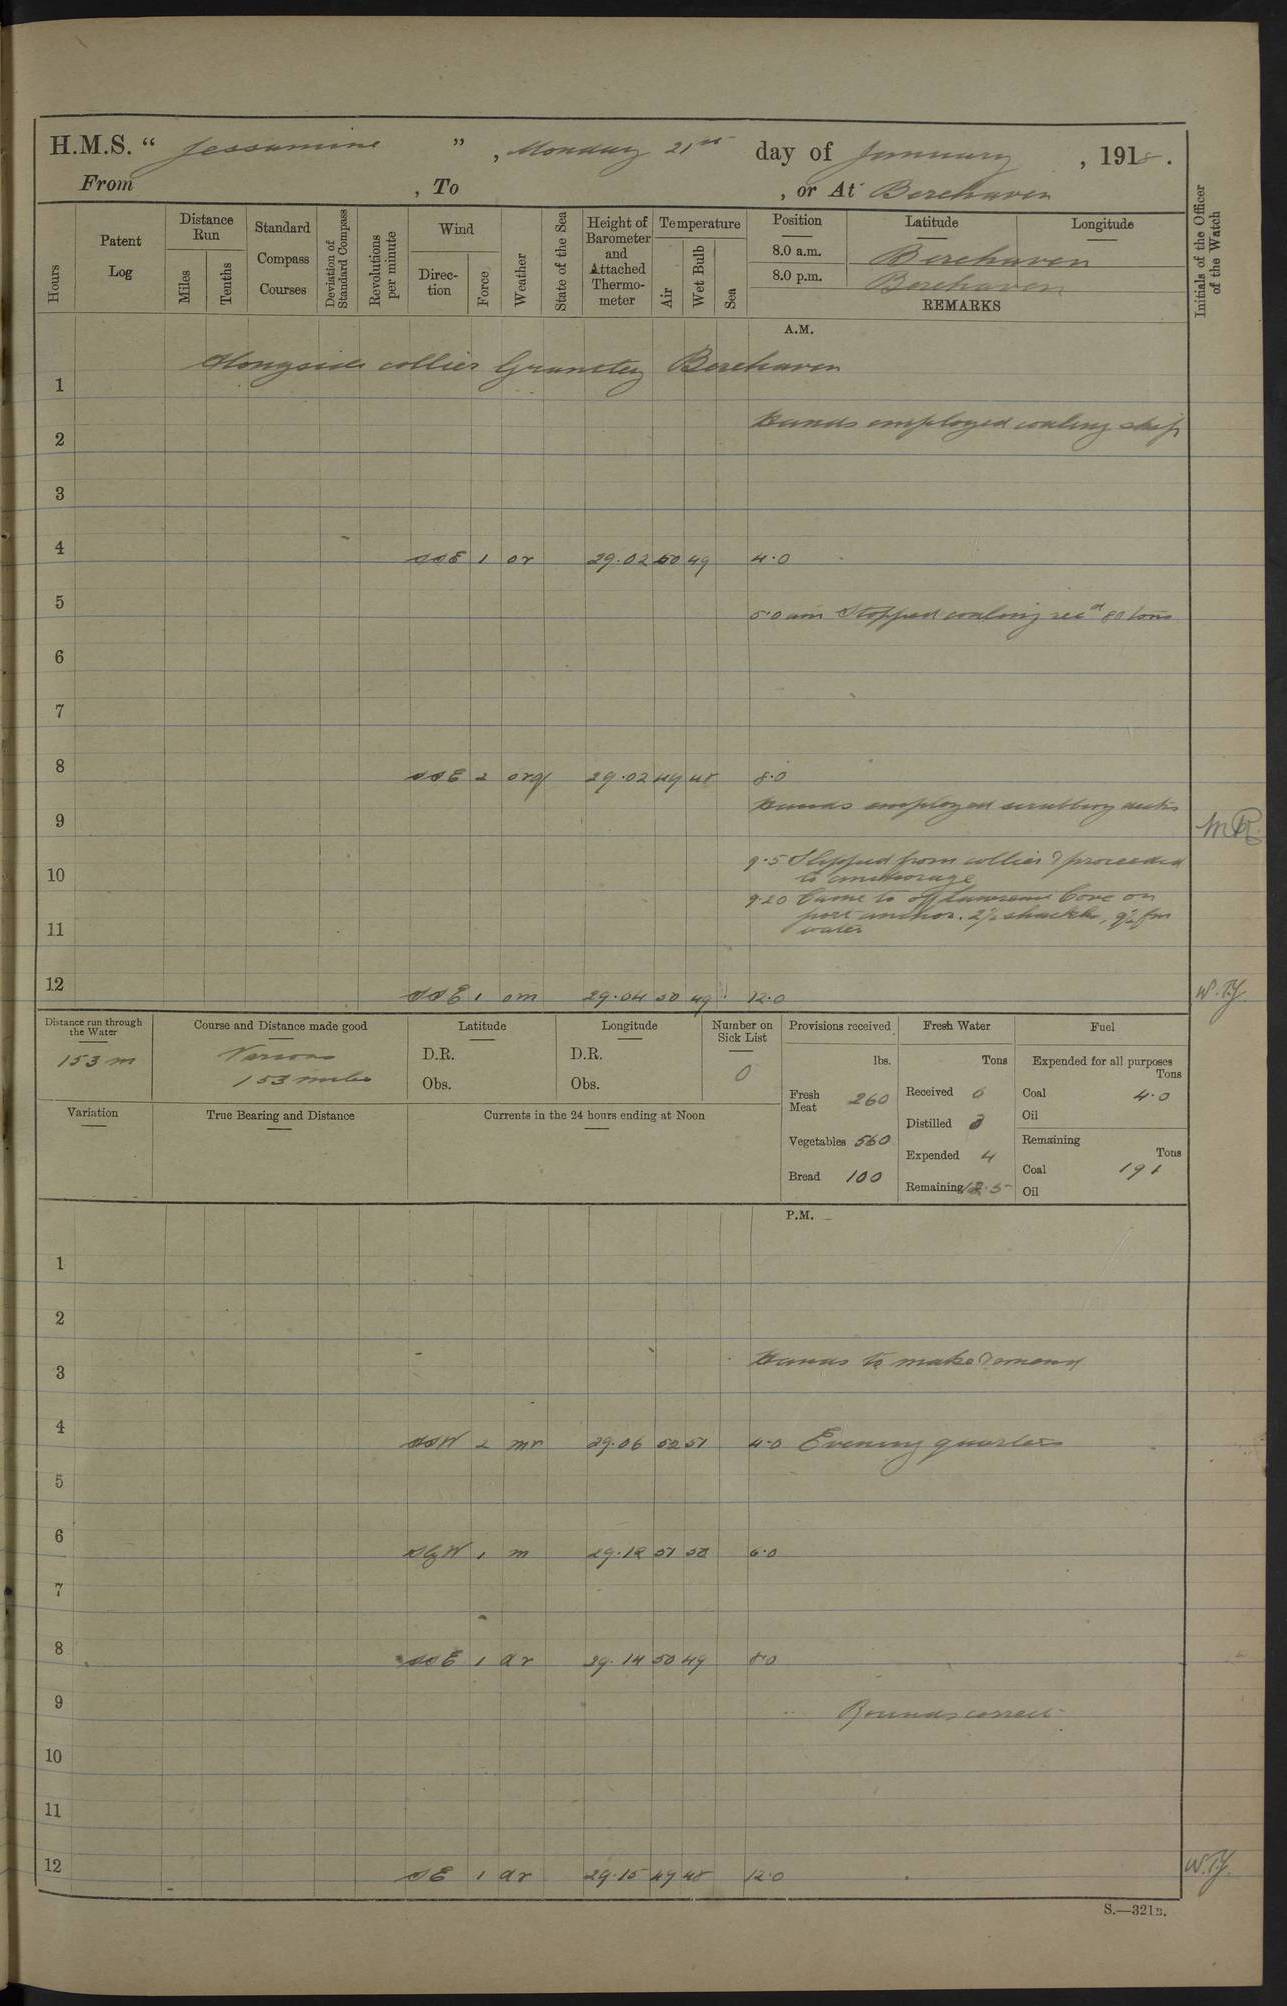 H.M.S. " Jessamine " , Monday 21st day of January , 1918 .
From , To , or At Berehaven
Hours
Patent Log
Distance Run
Miles
Tenths
Standard Compass Courses
Deviation of Standard Compass
Revolutions per minute
Wind
Direction
Force
Weather
State of the Sea
Height of Barometer and Attached Thermometer
Temperature
Air
Wet Bulb
Sea
Position Latitude Longitude
8.0 a.m. Berehaven
8.0 p.m. Berehaven
REMARKS
Initials of the Officer of the Watch
A.M.
Alongside collier Berehaven
1
Hands employed coaling ship
2
3
4 SSE 1 or 29.02 50 49 4.0
5 5.0 am Stopped coaling recd 80 tons
6
7
8 SSE 2 orq 29.02 49 48 8.0
Hands employed scrubbing decks
9 M R
9.5 Slipped from collier & proceeded
10 to anchorage
9.20 Came to off Lawrence Cove on
port anchor. shackles,
11 water
12 SSE 1 om 29.04 50 49 12.0 W.T.Y.
Distance run through the Water
153 m
Course and Distance made good
Various
153 miles
Latitude
D.R.
Obs.
Longitude
D.R.
Obs.
Number on Sick List
0
Provisions received
lbs.
Fresh Meat 260
Vegetables 560
Bread 100
Fresh Water
Tons
Received 6
Distilled
Expended 4
Remaining
Fuel
Expended for all purposes
Tons
Coal 4.0
Oil
Remaining
Tons
Coal 191
Oil
Variation
True Bearing and Distance
Currents in the 24 hours ending at Noon
P.M.
1
2
3 Hands to make & mend
4 SSW 2 mr 29.06 52 51 4.0 Evening quarters
5
6 SbyW 1 m 29.12 51 50 6.0
7
8 SSE 1 dr 29.14 50 49 8.0
9 Rounds correct
10
11
12 SE 1 dr 29.15 49 48 12.0 W.T.Y.
S.—321B.